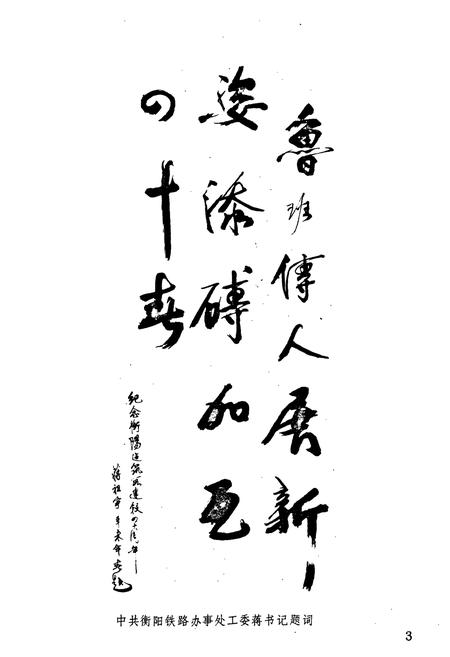 魯班傳人展新
姿添磚加瓦
四十春
纪念衡陽建筑段建段四十周年
辛未年
中共衡阳铁路办事处工委蒋书记题词
3